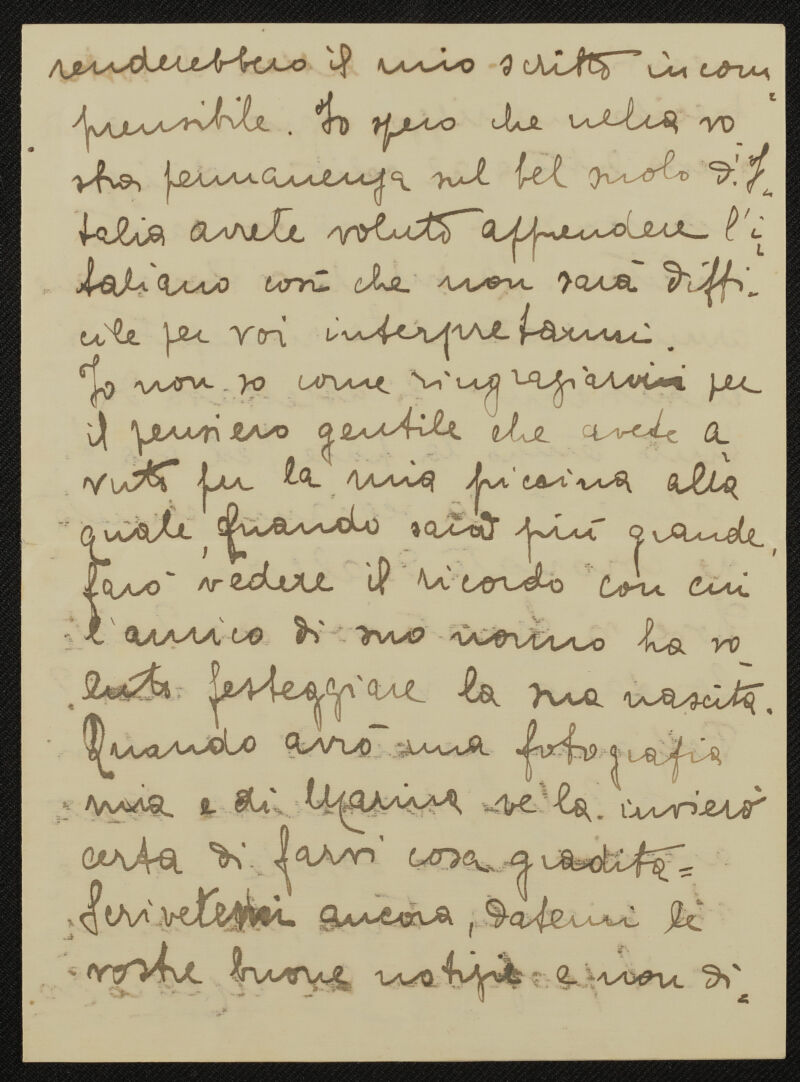 renderebbero il mio scritto incom-
prensibile. Io spero che nella vo
stra permanenza sul bel suolo d'I-
talia avrete voluto apprendere l'i-
taliano così che non sarà diffi-
cile per voi interpretarmi.
Io non so come ringraziarvi per
il pensiero gentile che avete a
vuto per la mia piccina alla
quale, quando sarà più grande,
farò vedere il ricordo con cui
l'amico di suo nonno ha vo
luto festeggiare la sua nascita.
Quando avrò una fotografia
mia e di Marina ve la invierò
certa di farvi cosa gradita=
Scrivetemi ancora, datemi le
vostre buone notizie e non di=